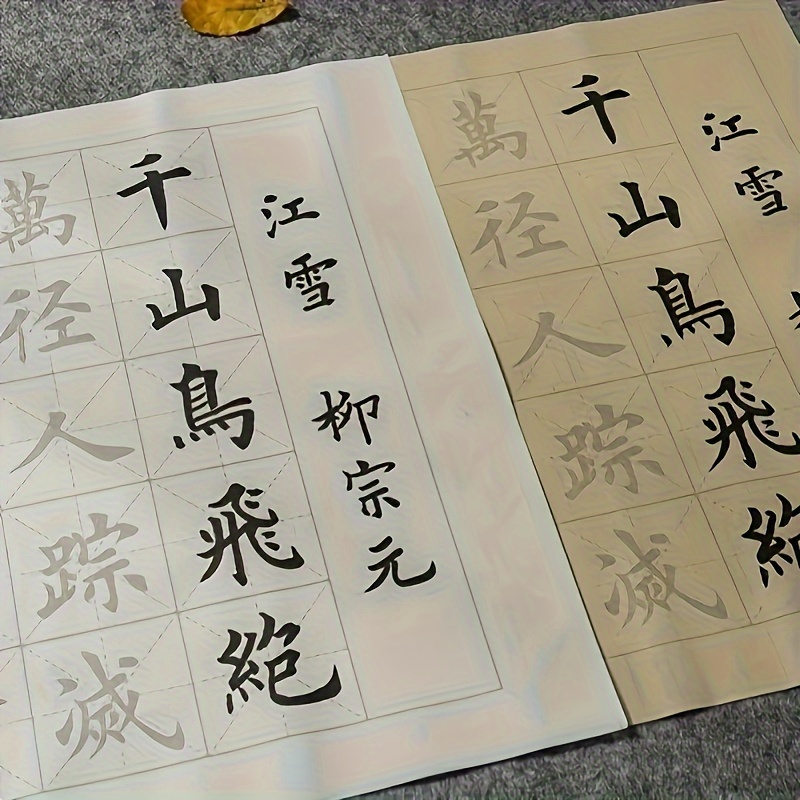 江雪 柳宗元
千山鳥飛絕
萬径人踪滅
江雪
千山鳥飛絕
萬径人踪滅